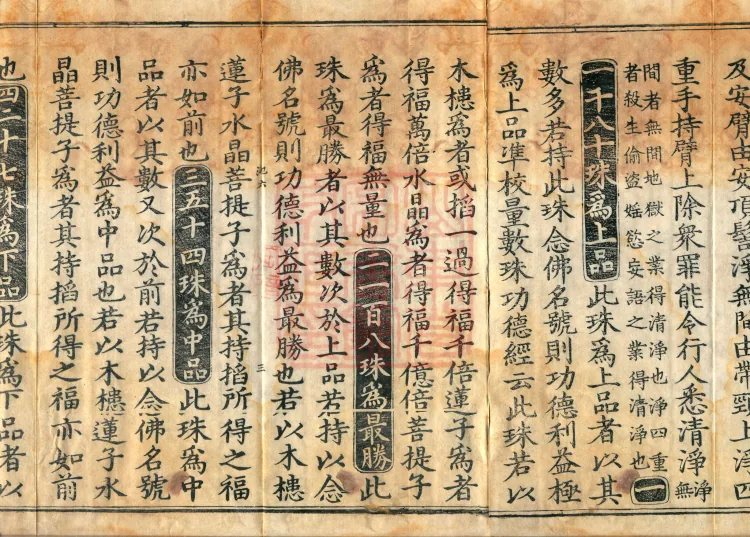 及安臂由安頂髻淨無間由帶頸上淨四
重手持臂上除衆罪能令行人悉清淨淨無
間者無間地獄之業得清淨也淨四重
者殺生偷盜婬慾妄語之業得清淨也
一
一千八十珠爲上品此珠爲上品者以其
數多若持此珠念佛名號則功德利益極
爲上品準校量數珠功德經云此珠若以
木槵爲者或掐一過得福千倍蓮子爲者
得福萬倍水晶爲者得福千億倍菩提子
爲者得福無量也二一百八珠爲最勝此
珠爲最勝者以其數次於上品若持以念
佛名號則功德利益爲最勝也若以木槵
三
蓮子水晶菩提子爲者其持掐所得之福
亦如前也三五十四珠爲中品此珠爲中
品者以其數又次於前若持以念佛名號
則功德利益爲中品也若以木槵蓮子水
晶菩提子爲者其持掐所得之福亦如前
也四二十七珠爲下品此珠爲下品者以